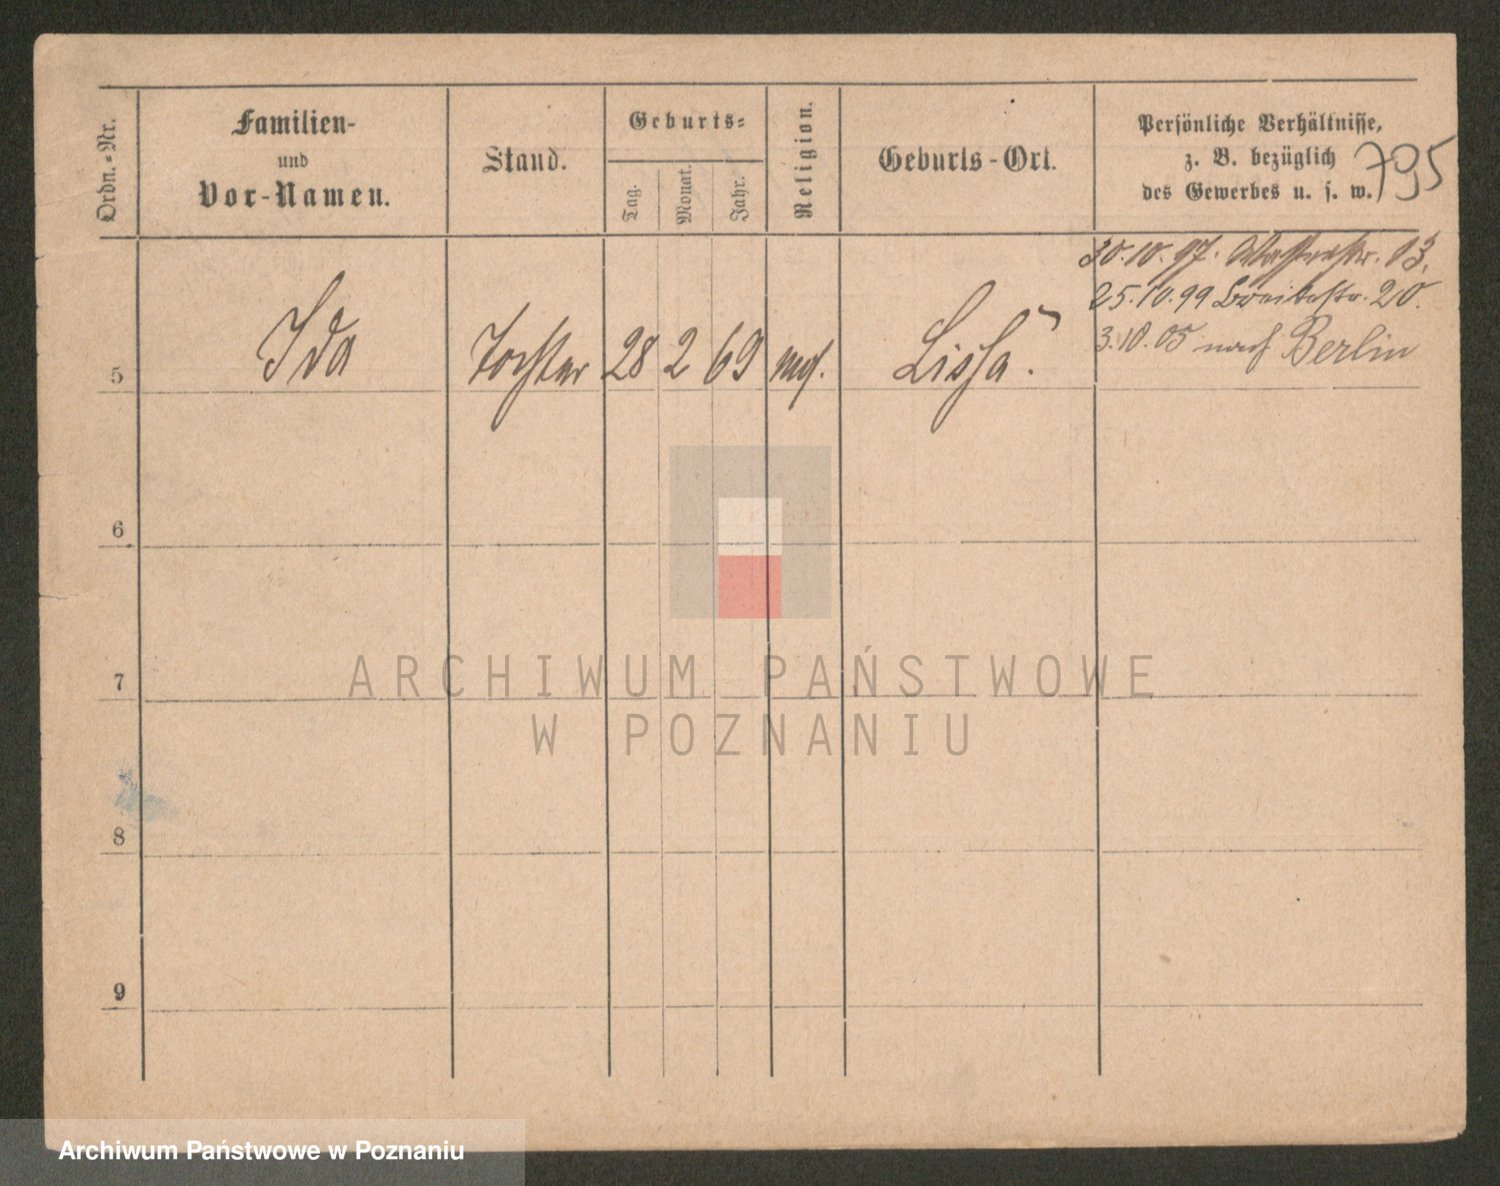 Ordn.-Nr.
Familien-
und
Vor-Namen.
Stand.
Geburts-
Tag.
Monat.
Jahr.
Religion.
Geburts-Ort.
Persönliche Verhältnisse,
z. B. bezüglich
des Gewerbes u. s. w.
795
5 Ida Tochter 28 2 69 Lissa.
30.10.97. 13.
25.10.99 Breitestr. 20.
3.10.05 nach Berlin
6
7
8
9
ARCHIWUM PAŃSTWOWE
W POZNANIU
Archiwum Państwowe w Poznaniu